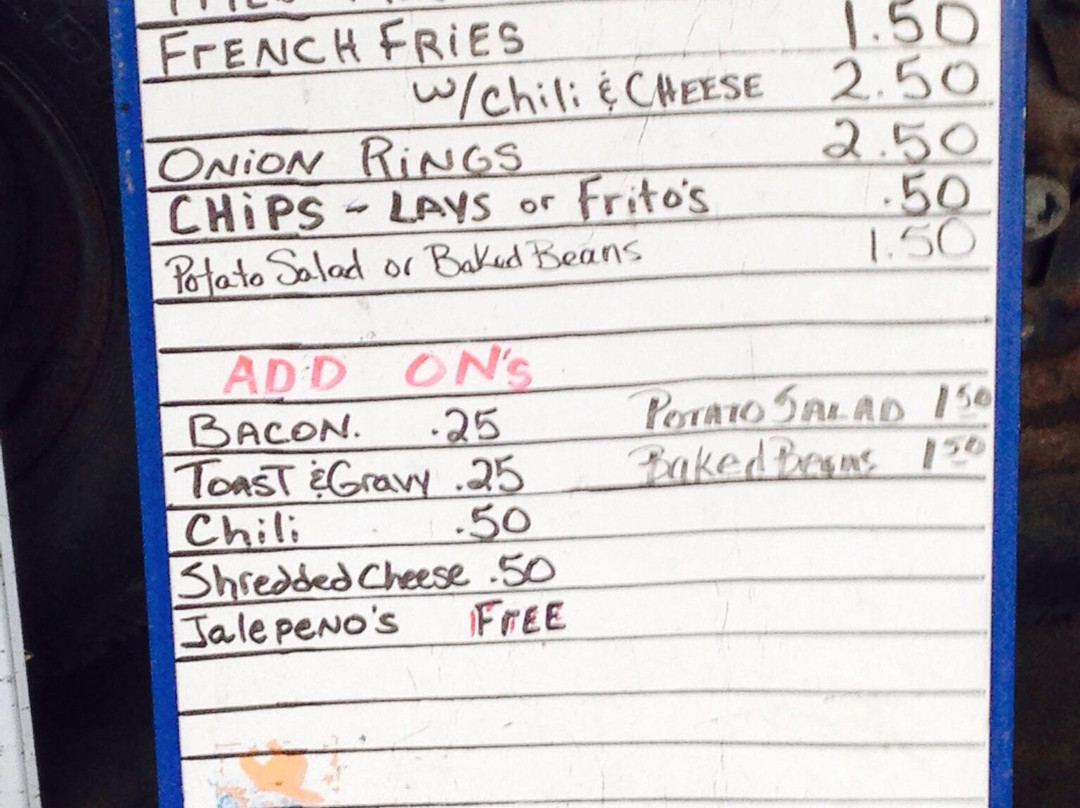 FrENCH FRiES 1.50
w/Chili & CHEESE 2.50
ONiON RiNGS 2.50
CHiPS - LAYS or Frito's .50
Potato Salad or Baked Beans 1.50
ADD ON's
BACON. .25 POTATO SALAD 1 50
Toast & Gravy .25 Baked Beans 1 50
Chili .50
Shredded Cheese .50
JalepeNo's FrEE